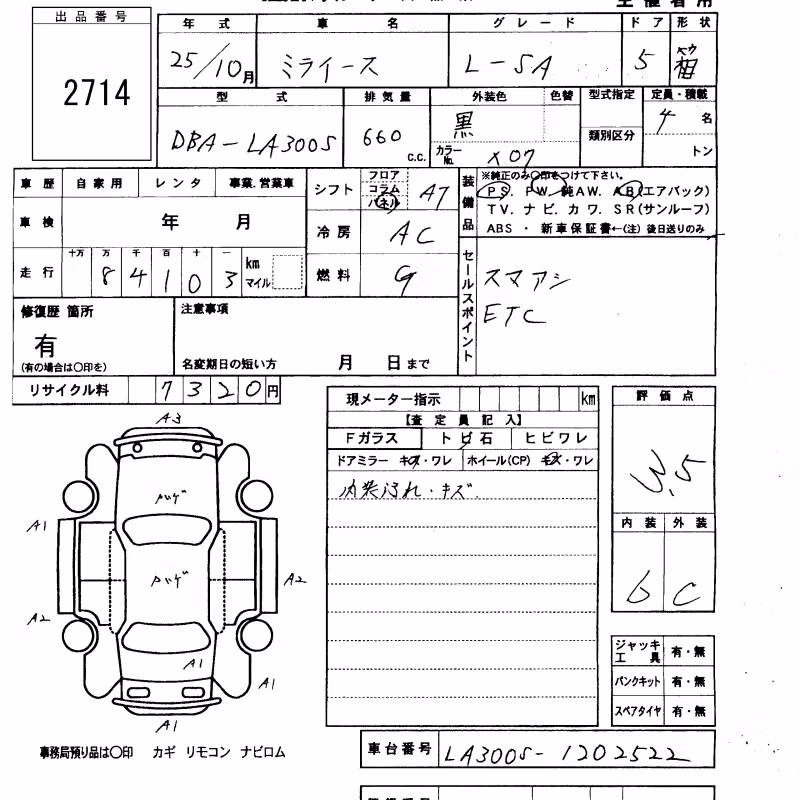 出品番号
2714
年式 車名 グレード ドア 形状
25/10月 ミライース L-SA 5 箱
型式 排気量 外装色 色替 型式指定 定員・積載
DBA-LA300S 660 c.c. 黒 類別区分 4名
カラーNo. X07 トン
車歴 自家用 レンタ 事業.営業車
車検 年 月
走行 十万 万 千 百 十 一
8 4 1 0 3 km マイル
シフト フロア コラム パネル AT
冷房 AC
燃料 G
装備品
※純正のみ○印をつけて下さい。
PS. PW. 純AW. AB(エアバック)
TV. ナビ. カワ. SR(サンルーフ)
ABS ・ 新車保証書←(注) 後日送りのみ
セールスポイント
スマアシ
ETC
修復歴 箇所
有
(有の場合は○印を)
注意事項
名変期日の短い方 月 日まで
リサイクル料 7320円
現メーター指示 km
【査定員記入】
Fガラス トビ石 ヒビワレ
ドアミラー キズ・ワレ ホイール(CP) キズ・ワレ
内装汚れ・キズ
評価点
3.5
内装 外装
b C
ジャッキ工具 有・無
パンクキット 有・無
スペアタイヤ 有・無
A3
ハゲ
A1
ハゲ
A2
A2
A1
A1
A1
事務局預り品は○印 カギ リモコン ナビロム
車台番号 LA300S-1202522